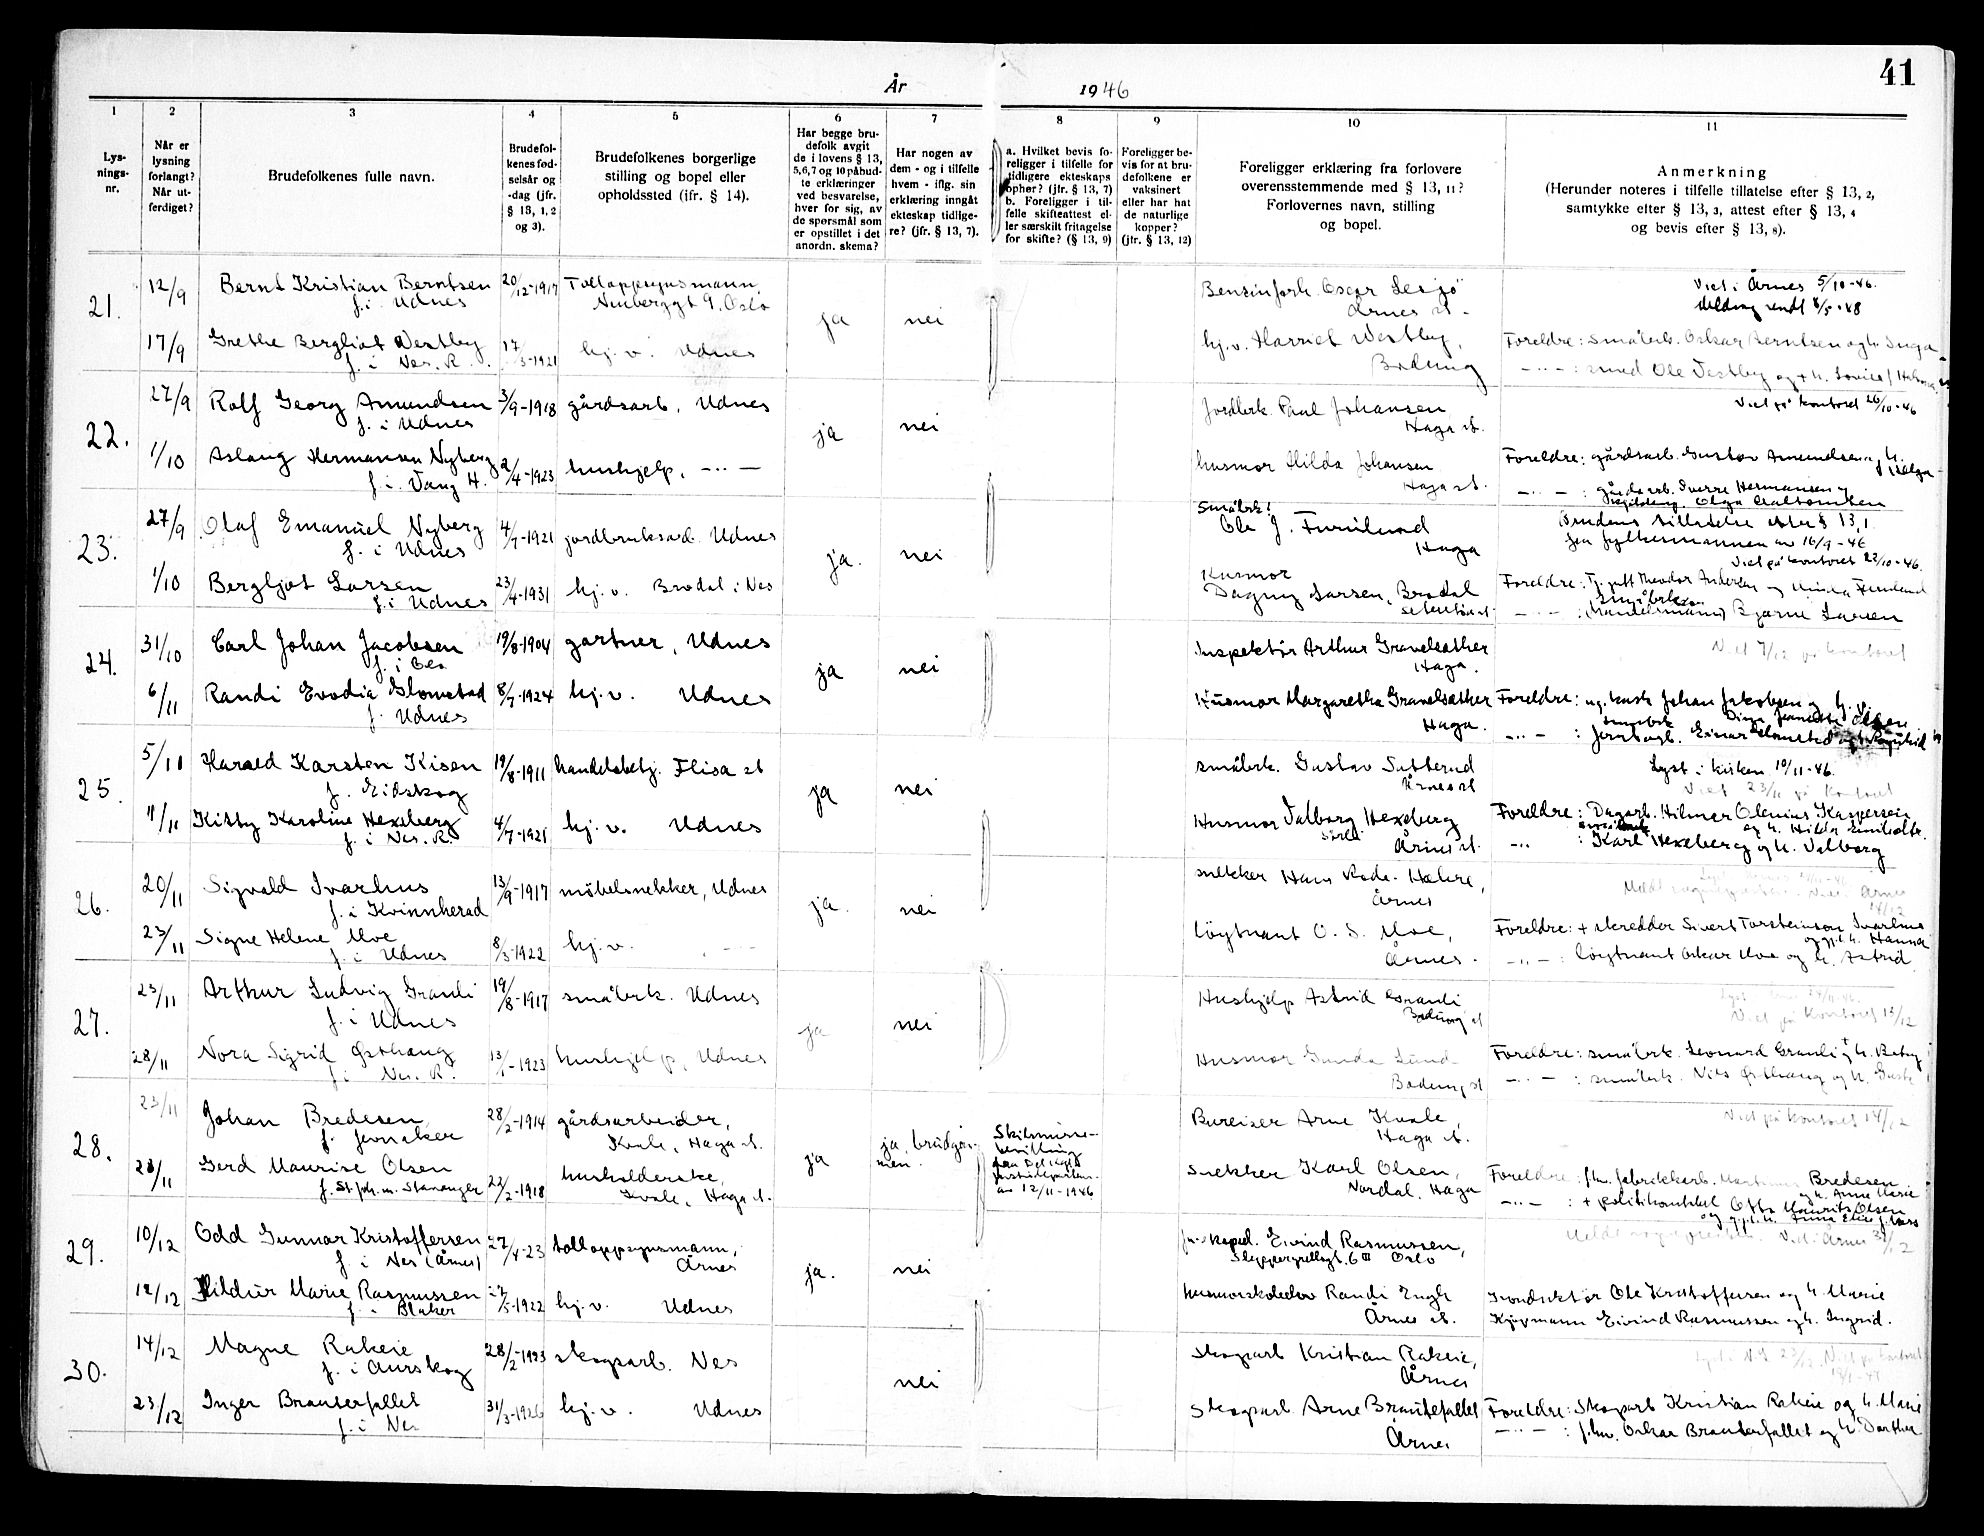 41
År 1946
1
Lys-
nings-
nr.
2
Når er
lysning
forlangt?
Når ut-
ferdiget?
3
Brudefolkenes fulle navn.
4
Brudefol-
kenes fød-
selsår og
-dag (jfr.
§ 13, 1, 2
og 3).
5
Brudefolkenes borgerlige
stilling og bopel eller
opholdssted (ifr. § 14).
6
Har begge bru-
defolk avgit
de i lovens § 13,
5,6,7 og 10 påbud-
te erklæringer
ved besvarelse,
hver for sig, av
de spørsmål som
er opstillet i det
anordn. skema?
7
Har nogen av
dem - og i tilfelle
hvem - iflg. sin
erklæring inngåt
ekteskap tidlige-
re? (jfr. § 13, 7).
8
a. Hvilket bevis fo-
religger i tilfelle for
tidligere ekteskaps
ophør? (jfr. § 13, 7)
b. Foreligger i til-
felle skifteattest el-
ler særskilt fritagelse
for skifte? (§ 13, 9)
9
Foreligger be-
vis for at bru-
defolkene er
vaksinert
eller har hat
de naturlige
kopper?
(jfr. § 13, 12)
10
Foreligger erklæring fra forlovere
overensstemmende med § 13, 11?
Forlovernes navn, stilling
og bopel.
11
Anmerkning
(Herunder noteres i tilfelle tillatelse efter § 13, 2,
samtykke efter § 13, 3, attest efter § 13, 4
og bevis efter § 13, 8).
21. 12/9 Bernt Kristian Berntsen 20/12-1917 Tolloppsynsmann,
f. i Udnes 9, Oslo
ja nei
Oscar
Årnes st.
Viet i Årnes 5/10-46.
Melding sendt 8/5-48
17/9 Grethe Bergliot Vestby 17/3-1921 hj. v. Udnes
f. i Nes. R.
hj. v. Harriet Vestby,
Bodung
Foreldre: småbrk. Oskar Berntsen og h. Inga
-"- : smed Ole Vestby og + h.
22. 27/9 Rolf Georg Amundsen 3/9-1918 gårdsarb., Udnes
f. i Udnes
ja nei
jordbrk. Paul Johansen
Haga st.
Viet på kontoret 26/10-46
1/10 Aslaug Hermansen Nyberg 2/4-1923 hushjelp, -"-
f. i. Vang H.
husmor Hilda Johansen
Haga st.
Foreldre: gårdsarb. Gustav Amundsen og h. Helga
-"- : gårdsarb. Sverre Hermansen og
Olga
23. 27/9 Olaf Emanuel Nyberg 4/7-1921 jordbruksarb. Udnes
f. i Udnes
ja. nei
Småbrk.
Ole J. Furulund
Haga
Brudens tilladelse efter § 13, 1
fra fylkesmannen av 16/9-46
Viet på kontoret 22/10-46.
1/10 Bergljot Larsen 23/4-1931 hj. v. Brodal i Nes
f. i Udnes
Husmor
Dagny Larsen, Brodal
Foreldre: Tj. gutt Theodor Andersen og
-"- : Småbrk. (Handelsmann) Bjarne Larsen
24. 31/10 Carl Johan Jacobsen 19/8-1904 gartner, Udnes
f. i Oslo
ja nei
Inspektør Arthur Gravelsæther
Haga.
Viet 7/12 på kontoret
6/11 Randi Evodia Glomstad 8/7-1924 hj. v. Udnes
f. Udnes
Husmor Margaretha Gravelsæther
Haga.
Foreldre: ug. kusk Johan Jakobsen og h. v.
Olsen
-"- : Einar Glomstad og h. Ragnhild
25. 5/11 Harald Karsten Kisen 19/8-1911 handelsbetj. Flisa st
f. Eidskog
ja nei
småbrk. Gustav Sætterud
Årnes st
Lyst i kirken 10/11-46.
Viet 23/11 på kontoret
11/11 Kitty Karoline Hexeberg 4/7-1921 hj. v. Udnes
f. i Nes. R.
Husmor Valborg Hexeberg
Årnes st.
Foreldre: Dagarb. Hilmer Olenius Kaspersen
og h. Hilda
-"- : småbrk Karl Hexeberg og h. Valborg
26. 20/11 Sigvald Ivarhus 13/9-1917 møbelsnekker, Udnes
f. i Kvinnherad
ja. nei
snekker Hans
Årnes
Viet i Årnes
14/12
23/11 Signe Helene Moe 8/3-1922 hj. v. -"-
f. i Udnes
løytnant O. S. Moe,
Årnes.
Foreldre: + skredder Sivert Torsteinson Ivarhus
og gjl. h. Hanna
-"- : løytnant Oskar Moe og h. Astrid
27. 23/11 Arthur Ludvig Granli 19/8-1917 småbrk. Udnes
f. i Udnes
ja nei
Hushjelp Astrid Granli
Bodung st
Viet på kontoret 13/12
28/11 Nora Sigrid Østhaug 13/1-1923 hushjelp, Udnes
f. i Nes. R.
Husmor Gunda Lund
Bodung st
Foreldre: småbrk. Leonard Granli og + h. Betsy
-"- : småbrk. Nils Østhaug og h.
28. 23/11 Johan Bredesen 28/2-1914 gårdsarbeider,
f. Jevnaker Kvale, Haga st.
ja ja, brudgom-
men.
Skilsmisse-
bevilling
fra Det kgl.
justisdepartem.
av 12/11-1946
Bureiser Arne Kvale,
Haga st.
Viet på kontoret 14/12
28/11 Gerd Maurise Olsen 22/2-1918 husholderske,
f. St. joh. m. Stavanger Kvale, Haga st.
Snekker Karl Olsen,
Nordal, Haga
Foreldre: fhv. fabrikkarb. Bredesen
og h. Anne Marie
-"- : + politikonstabel Otto Maurits Olsen
og gjl. h. Anna
29. 10/12 Odd Gunnar Kristoffersen 27/4-23 tolloppsynsmann,
f. i Nes (Årnes) Årnes
ja. nei
Eivind Rasmussen,
6 III Oslo
Viet i Årnes
12/12 Hildur Marie Rasmussen 27/5-1922 hj. v. Udnes
f. i Blaker
husmorskolelev Randi Engh
Årnes st.
Konduktør Ole Kristoffersen og h. Marie
Kjøpmann Eivind Rasmussen og h. Ingrid.
30. 14/12 Magne Rakeie 28/2-1923 skogsarb. Nes
f. i Aurskog
nei
skogsarb Kristian Rakeie,
Årnes
23/12 Inger Brauterfallet 31/3-1926 hj. v. Udnes
f. i Nes
skogsarb Arne Brauterfallet
Årnes
Foreldre: Skogsarb Kristian Rakeie og h. Marie
-"- : fhv. Oskar Brauterfallet og h. Dorthea